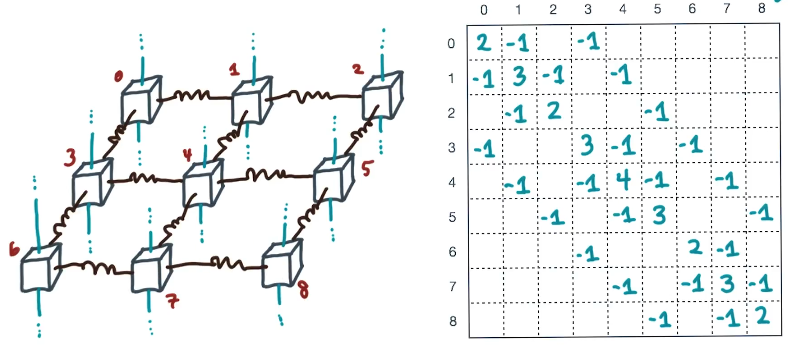 0 1 2
3 4 5
6 7 8
0 1 2 3 4 5 6 7 8
0 2 -1 -1
1 -1 3 -1 -1
2 -1 2 -1
3 -1 3 -1 -1
4 -1 -1 4 -1 -1
5 -1 -1 3 -1
6 -1 2 -1
7 -1 -1 3 -1
8 -1 -1 2